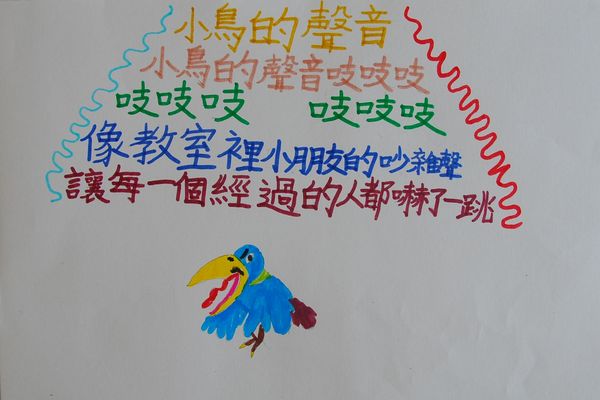 小鳥的聲音
小鳥的聲音吱吱吱
吱吱吱 吱吱吱
像教室裡小朋友的吵雜聲
讓每一個經過的人都嚇了一跳